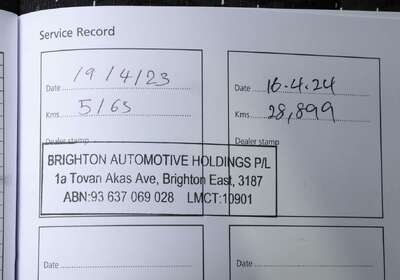 Service Record
Date 19/4/23
Kms 5165
Dealer stamp
BRIGHTON AUTOMOTIVE HOLDINGS P/L
1a Tovan Akas Ave, Brighton East, 3187
ABN:93 637 069 028 LMCT:10901
Date 16.4.24
Kms 28,899
Dealer stamp
Date
Date